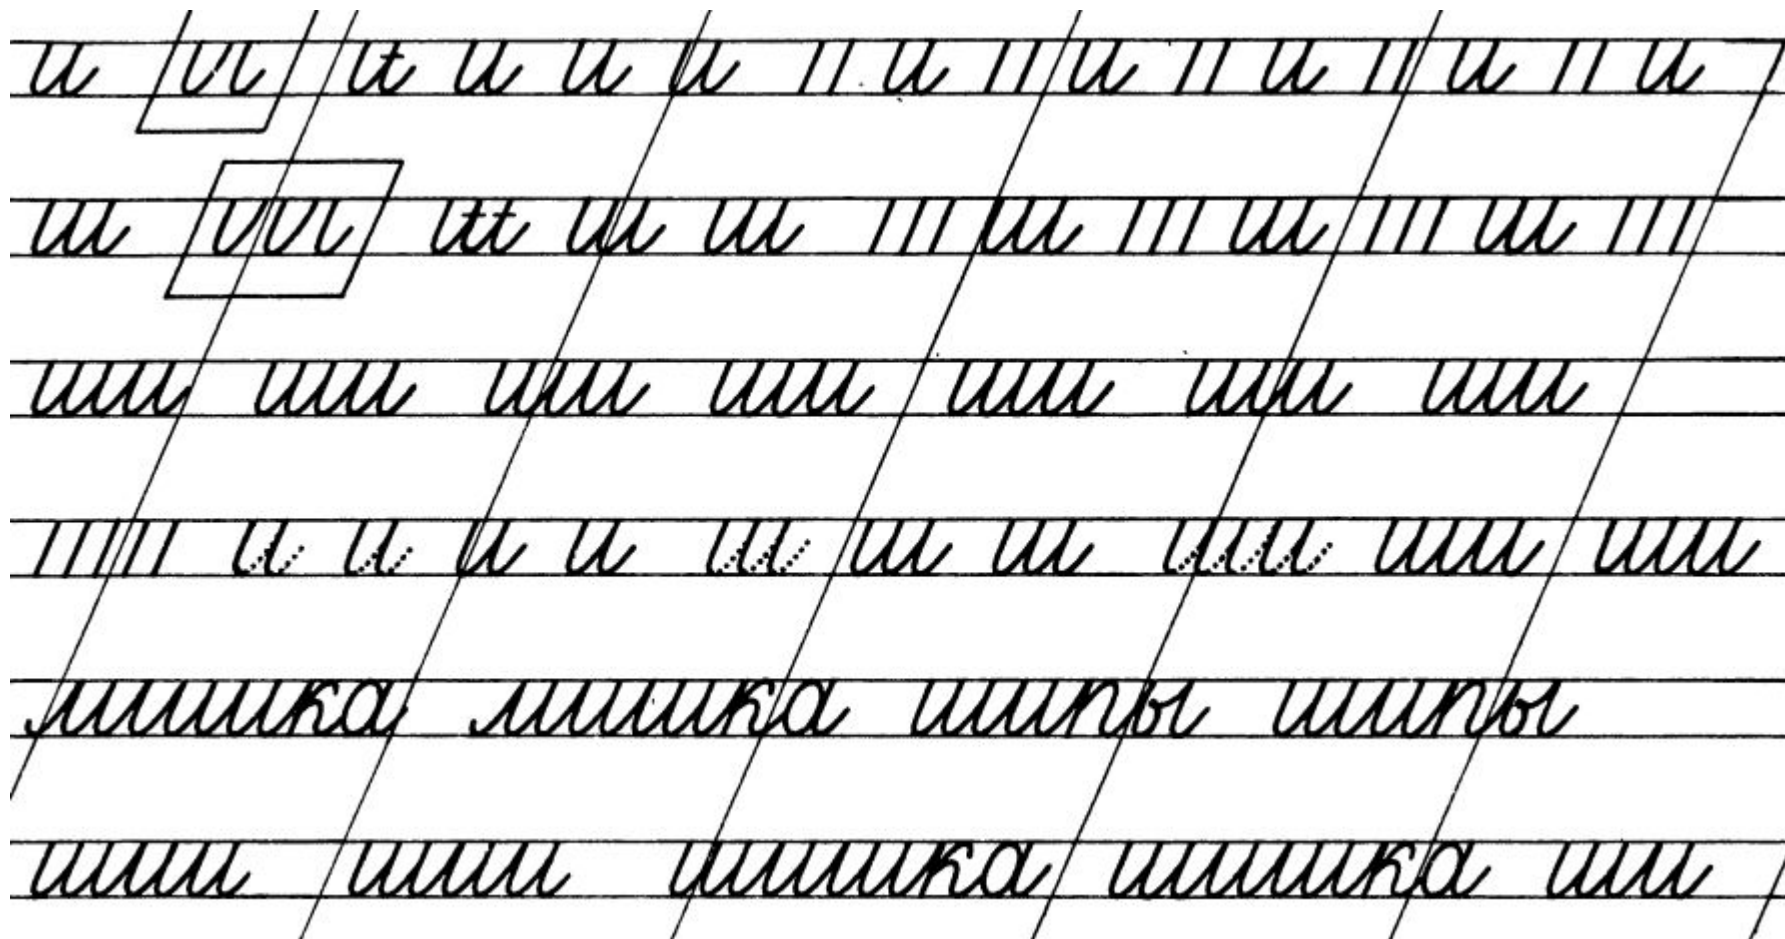 и и и и и и // и // и // и // и // и
ш ш ш ш ш /// ш /// ш /// ш ///
ши ши ши ши ши ши ши
///// и и и и ш ш ш ши ши ши
мишка мишка шипы шипы
шиш шиш шишка шишка ши